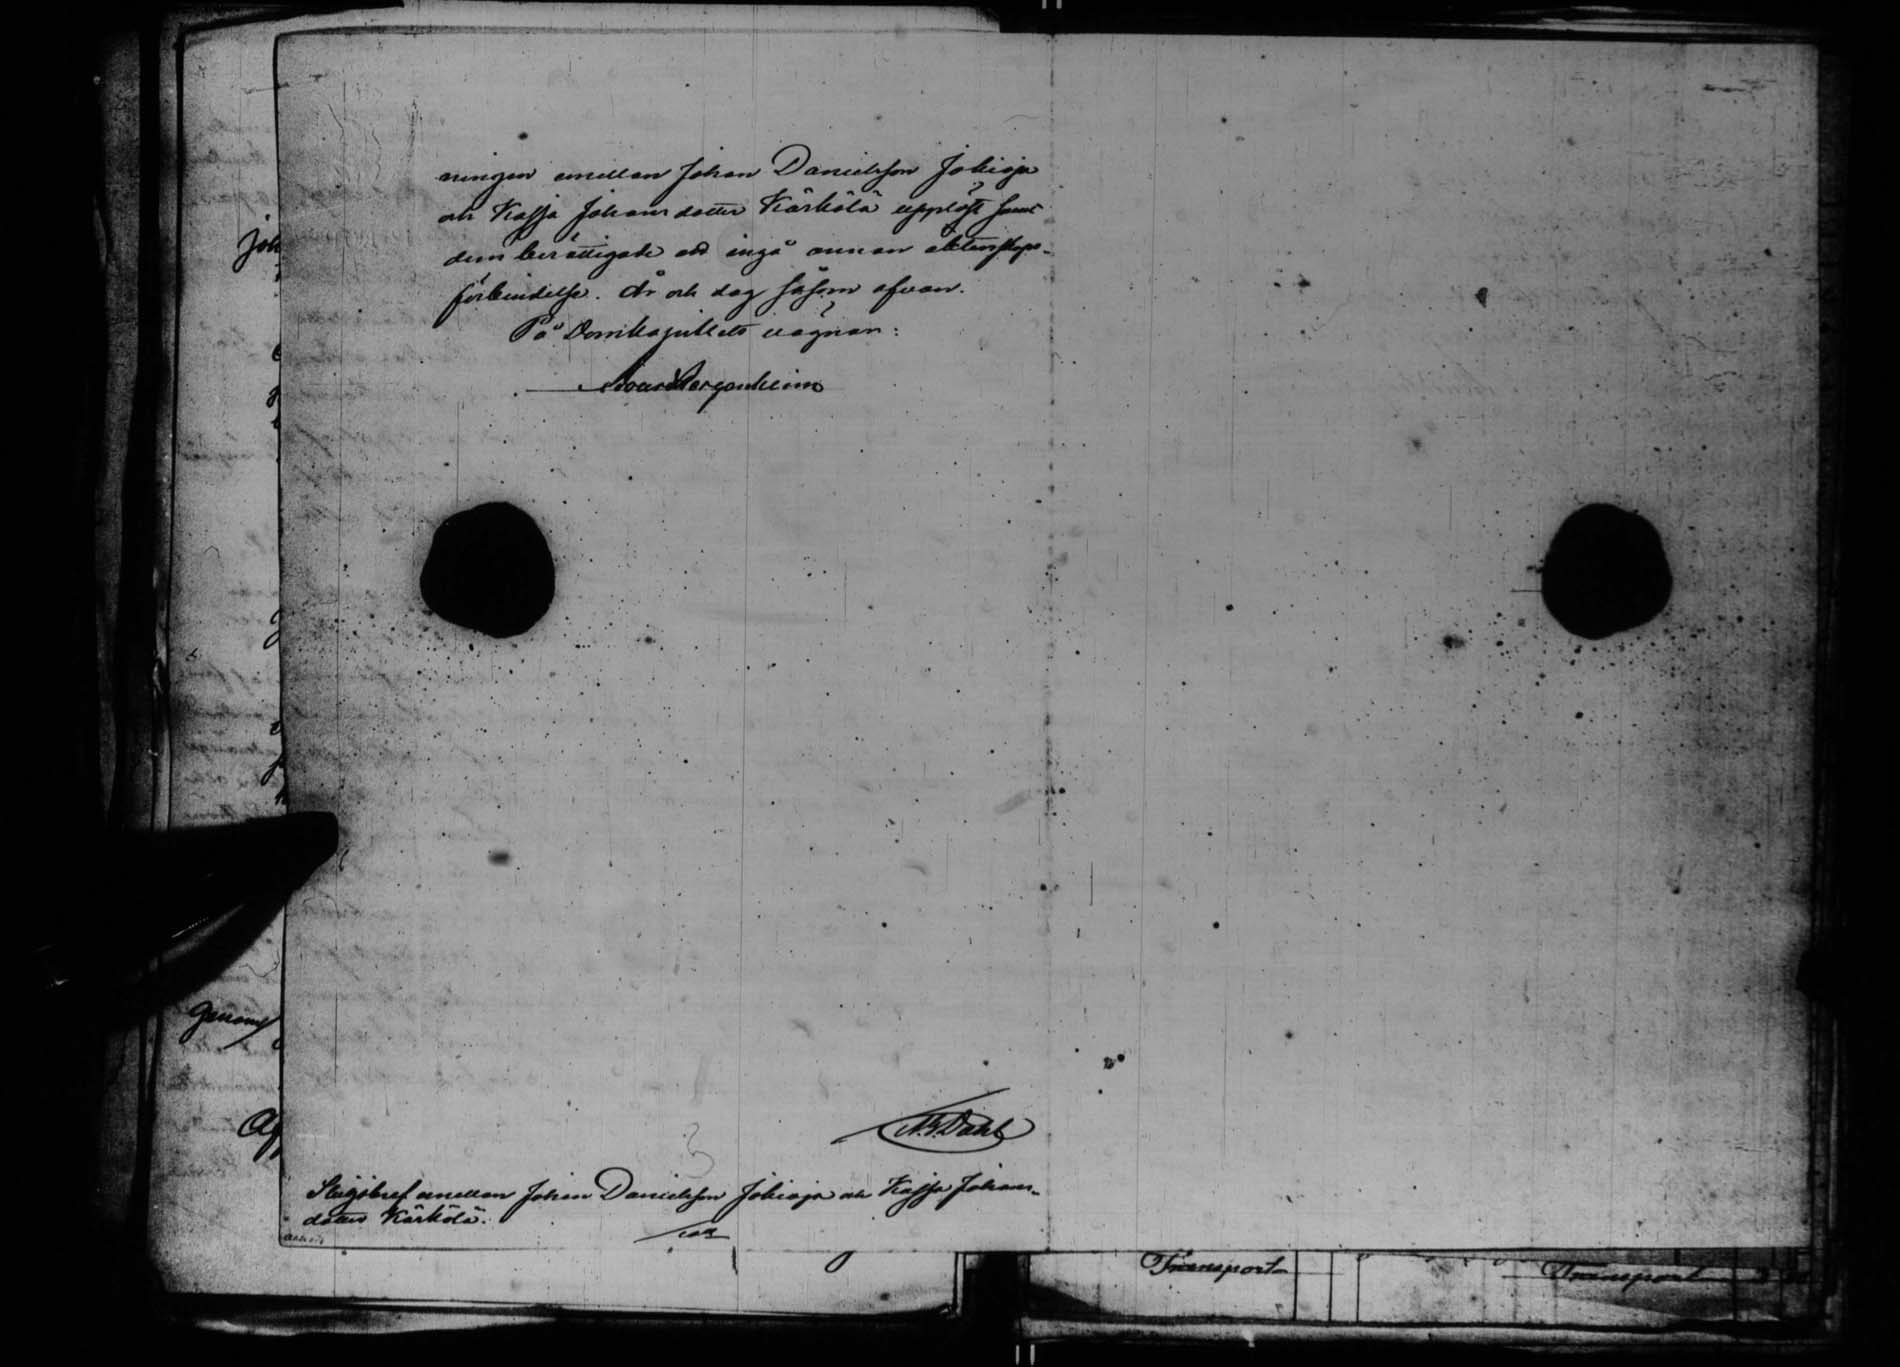 ningen emellan Johan Danielsson Jokioja
och Kajsa Johans dotter Kärkölä upplöst samt
dem berättigade att ingå annan äktenskaps-
förbindelse. År och dag såsom ofvan.
På Domkapitlets vägnar:
Bergenheim
Dahl
Skiljobref emellan Johan Danielsson Jokioja och Kajsa Johans-
dotter Kärkölä.
Joh
genom
Transport
Transport